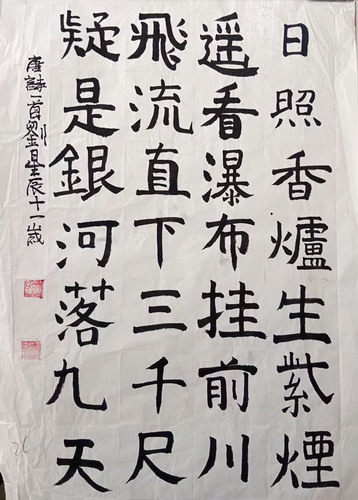 日照香爐生紫煙
遥看瀑布挂前川
飛流直下三千尺
疑是銀河落九天
唐詩一首劉星辰十一歲
26